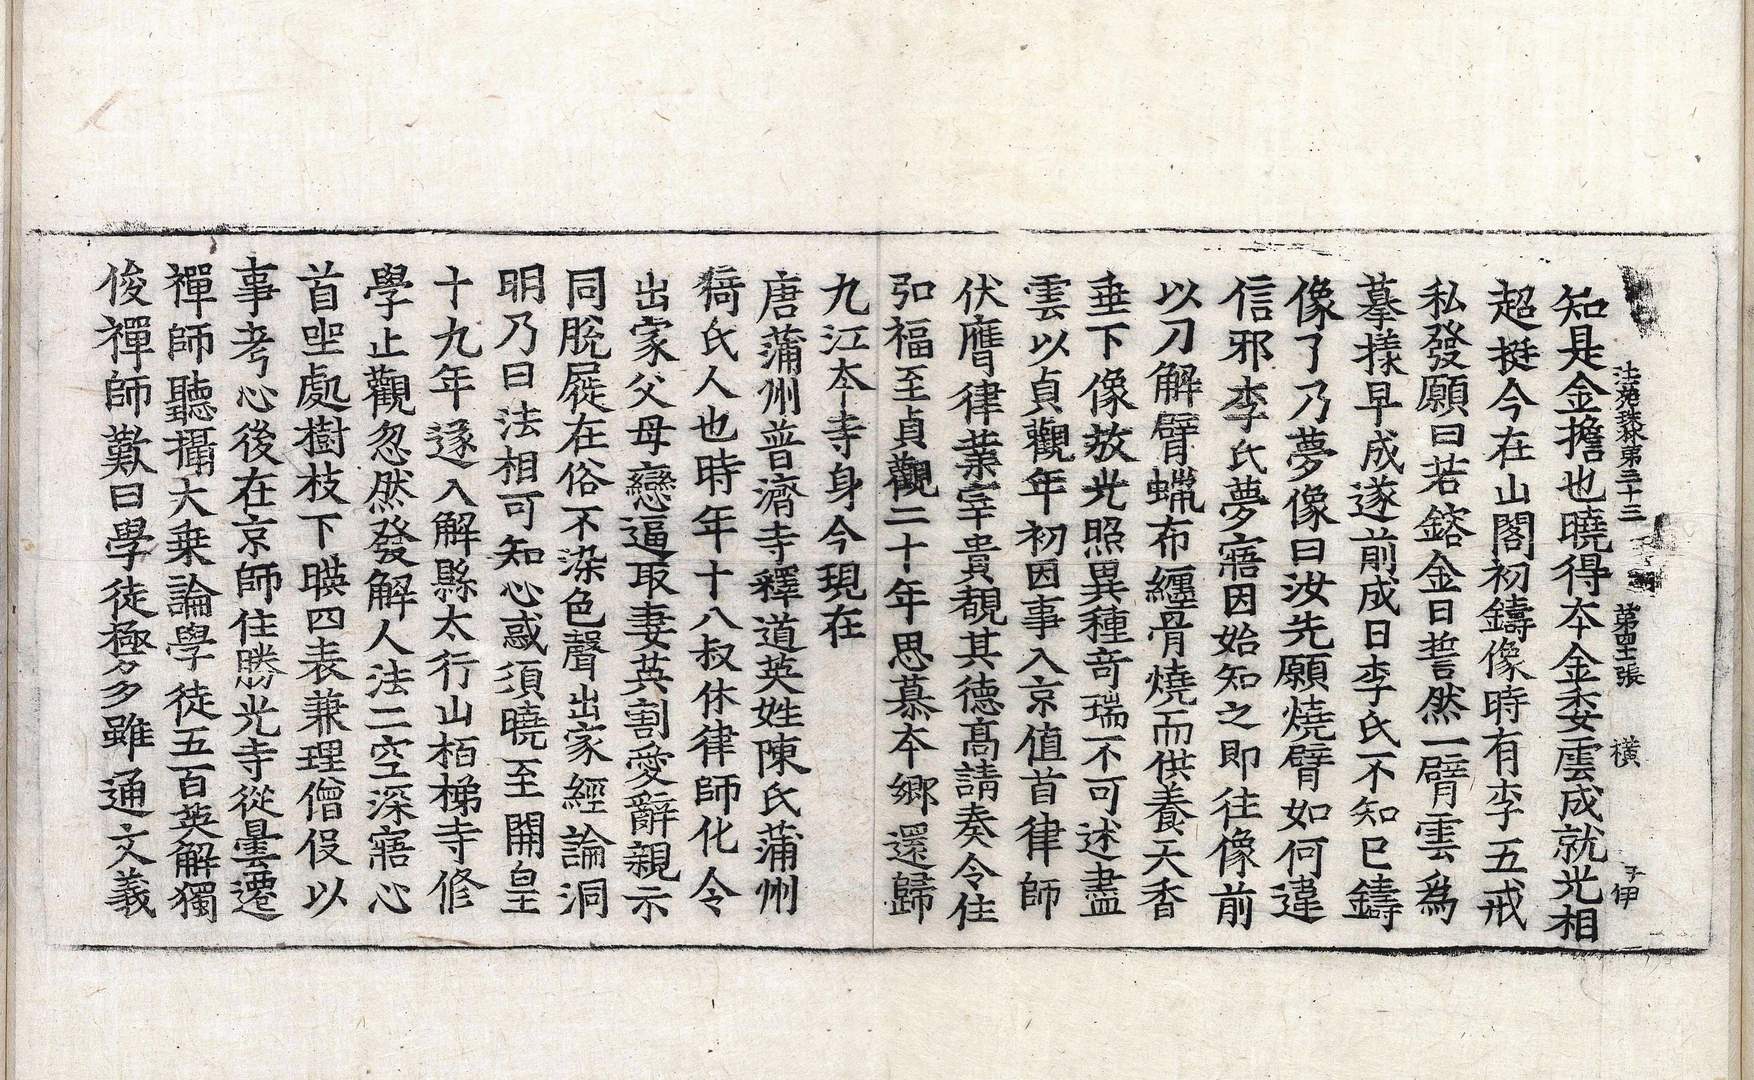 法苑珠林第三十三 第四十張 横 子伊
知是金擔也曉得本金委雲成就光相
超挺今在山閣初鑄像時有李五戒
私發願曰若鎔金日誓然一臂雲爲
摹㨾早成遂前成日李氏不知巳鑄
像了乃夢像曰汝先願燒臂如何違
信邪李氏夢寤因始知之即往像前
以刀解臂蠟布纏骨燒而供養天香
垂下像放光照異種竒瑞不可述盡
雲以貞觀年初因事入京值首律師
伏膺律業宰貴覩其德髙請奏令住
弘福至貞觀二十年思慕本鄉還歸
九江本寺身今現在
唐蒲州普濟寺釋道英姓陳氏蒲州
猗氏人也時年十八叔休律師化令
出家父母戀逼取妻英割愛辭親示
同脫屣在俗不染色聲出家經論洞
明乃曰法相可知心惑須曉至開皇
十九年遂入解縣太行山栢梯寺修
學止觀忽然發解人法二空深寤心
首㘴處樹枝下暎四表兼理僧役以
事考心後在京師住勝光寺從曇遷
禪師聽攝大乗論學徒五百英解獨
俊禪師歎曰學徒極多雖通文義